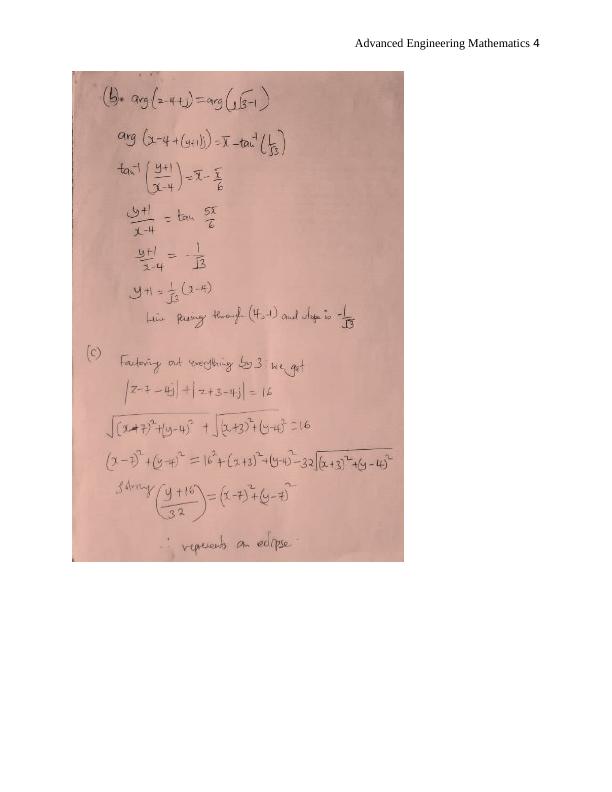 Advanced Engineering Mathematics 4
(b). arg(z-4+j) = arg(j√3-1)
arg (x-4+(y+1)j) = π - tan⁻¹(1/√3)
tan⁻¹((y+1)/(x-4)) = π - π/6
(y+1)/(x-4) = tan 5π/6
(y+1)/(x-4) = -1/√3
y+1 = 1/√3 (x-4)
Line Passing through (4,-1) and slope is -1/√3
(c) Factoring out everything by 3 we get
|z-7-4j|+|z+3-4j| = 16
√((x+7)²+(y-4)²) + √((x+3)²+(y-4)²) = 16
(x-7)²+(y-4)² = 16²+(x+3)²+(y-4)²-32√((x+3)²+(y-4)²)
Solving ((y+16)/32) = (x-7)²+(y-7)²
∴ represents an eclipse